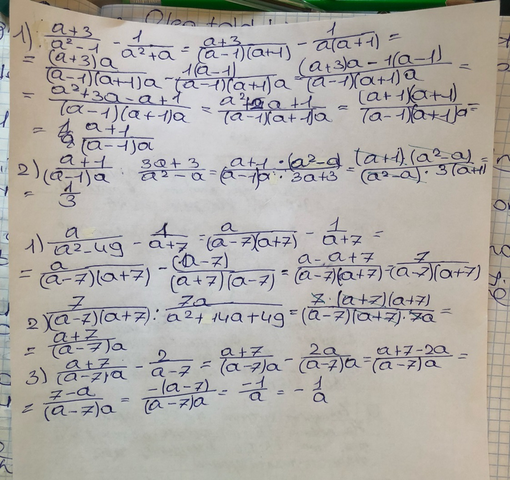 1) (a+3)/(a²-1) - 1/(a²+a) = (a+3)/((a-1)(a+1)) - 1/(a(a+1)) =
= ((a+3)a)/((a-1)(a+1)a) - (1(a-1))/((a-1)(a+1)a) = ((a+3)a-1(a-1))/((a-1)(a+1)a) =
= (a²+3a-a+1)/((a-1)(a+1)a) = (a²+2a+1)/((a-1)(a+1)a) = ((a+1)(a+1))/((a-1)(a+1)a) =
= (a+1)/((a-1)a)
2) (a+1)/((a-1)a) : (3a+3)/(a²-a) = (a+1)/((a-1)a) · (a²-a)/(3a+3) = ((a+1)·(a²-a))/((a²-a)·3(a+1)) =
= 1/3
1) a/(a²-49) - 1/(a+7) = a/((a-7)(a+7)) - 1/(a+7) =
= a/((a-7)(a+7)) - (1(a-7))/((a+7)(a-7)) = (a-a+7)/((a-7)(a+7)) = 7/((a-7)(a+7))
2) 7/((a-7)(a+7)) : 7a/(a²+14a+49) = (7·(a+7)(a+7))/((a-7)(a+7)·7a) =
= (a+7)/((a-7)a)
3) (a+7)/((a-7)a) - 2/(a-7) = (a+7)/((a-7)a) - 2a/((a-7)a) = (a+7-2a)/((a-7)a) =
= (7-a)/((a-7)a) = (-(a-7))/((a-7)a) = -1/a = -1/a